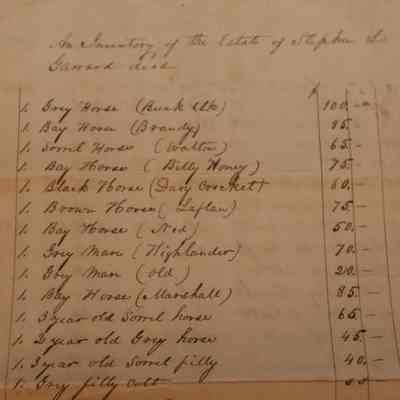 An Inventory of the Estate of Stephen
Garrard decd
$
1. Grey Horse (Buck Elk) 100.
1. Bay Horse (Brandy) 85.-
1. Sorrel Horse (Walton) 65.-
1. Bay Horse (Billy Honey) 75.-
1. Black Horse (Davy Crocket) 60.-
1. Brown Horse (Laflau) 75.-
1. Bay Horse (Ned) 50.-
1. Grey Mare (Highlander) 70.-
1. Grey Mare (old) 20.-
1. Bay Horse (Marshall) 85.-
1. 3 year old Sorrel horse 65.-
1. 2 year old Grey horse 45.-
1. 3 year old Sorrel filly 40.-
1. Grey filly Colt